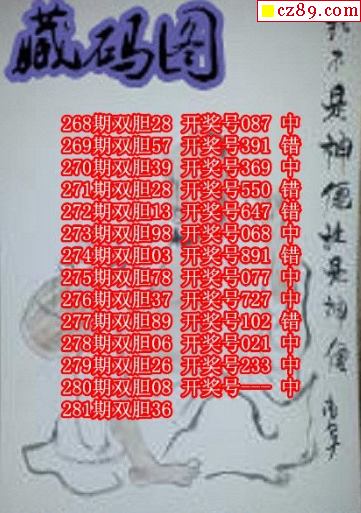 cz89.com
藏码图
我不是神仙胜是神仙
268期双胆28 开奖号087 中
269期双胆57 开奖号391 错
270期双胆39 开奖号369 中
271期双胆28 开奖号550 错
272期双胆13 开奖号647 错
273期双胆98 开奖号068 中
274期双胆03 开奖号891 错
275期双胆78 开奖号077 中
276期双胆37 开奖号727 中
277期双胆89 开奖号102 错
278期双胆06 开奖号021 中
279期双胆26 开奖号233 中
280期双胆08 开奖号--- 中
281期双胆36